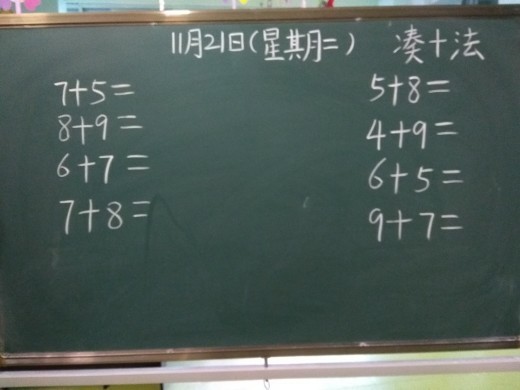 11月21日(星期二) 凑十法
7+5= 5+8=
8+9= 4+9=
6+7= 6+5=
7+8= 9+7=